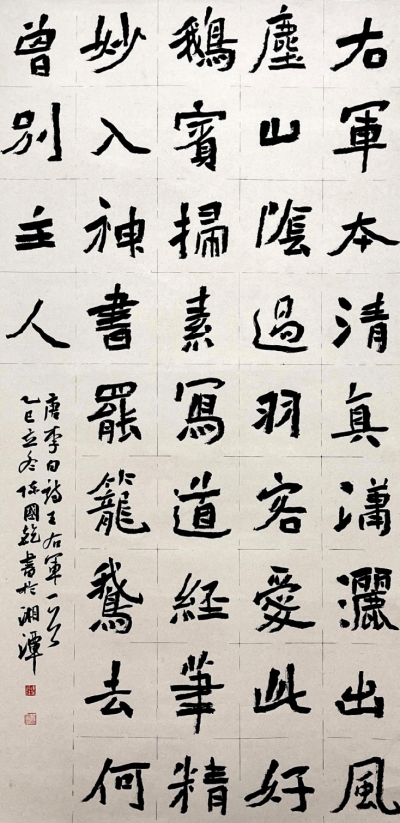 右軍本清真瀟灑出風
塵山陰過羽客愛此好
鵝賓掃素寫道經筆精
妙入神書罷籠鵝去何
曾別主人
唐李白詩王右軍一首
乙巳立冬陳國銘書於湘潭